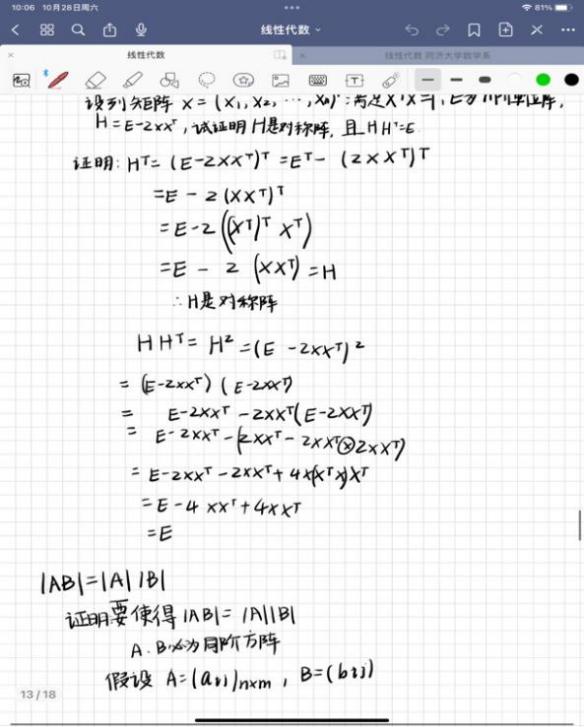 10:06 10月28日周六
81%
线性代数
线性代数
线性代数 同济大学数学系
设列矩阵 X = (x₁, x₂, ⋯, xₙ)ᵀ 满足XᵀX=1, E为n阶单位阵,
H=E-2xxᵀ, 试证明H是对称阵, 且HHᵀ=E
证明: Hᵀ= (E-2XXᵀ)ᵀ =Eᵀ- (2XXᵀ)ᵀ
=E - 2(XXᵀ)ᵀ
=E-2((Xᵀ)ᵀ Xᵀ)
=E - 2 (XXᵀ) =H
∴H是对称阵
HHᵀ= H² =(E -2XXᵀ)²
= (E-2XXᵀ) (E-2XXᵀ)
= E-2XXᵀ -2XXᵀ(E-2XXᵀ)
= E-2XXᵀ-(2XXᵀ-2XXᵀ⊗2XXᵀ)
= E-2XXᵀ-2XXᵀ+4X(XᵀX)Xᵀ
=E-4 XXᵀ+4XXᵀ
=E
|AB|=|A| |B|
证明要使得|AB|= |A||B|
A.B必为同阶方阵
假设 A=(aij)n×m , B=(bij)
13/18